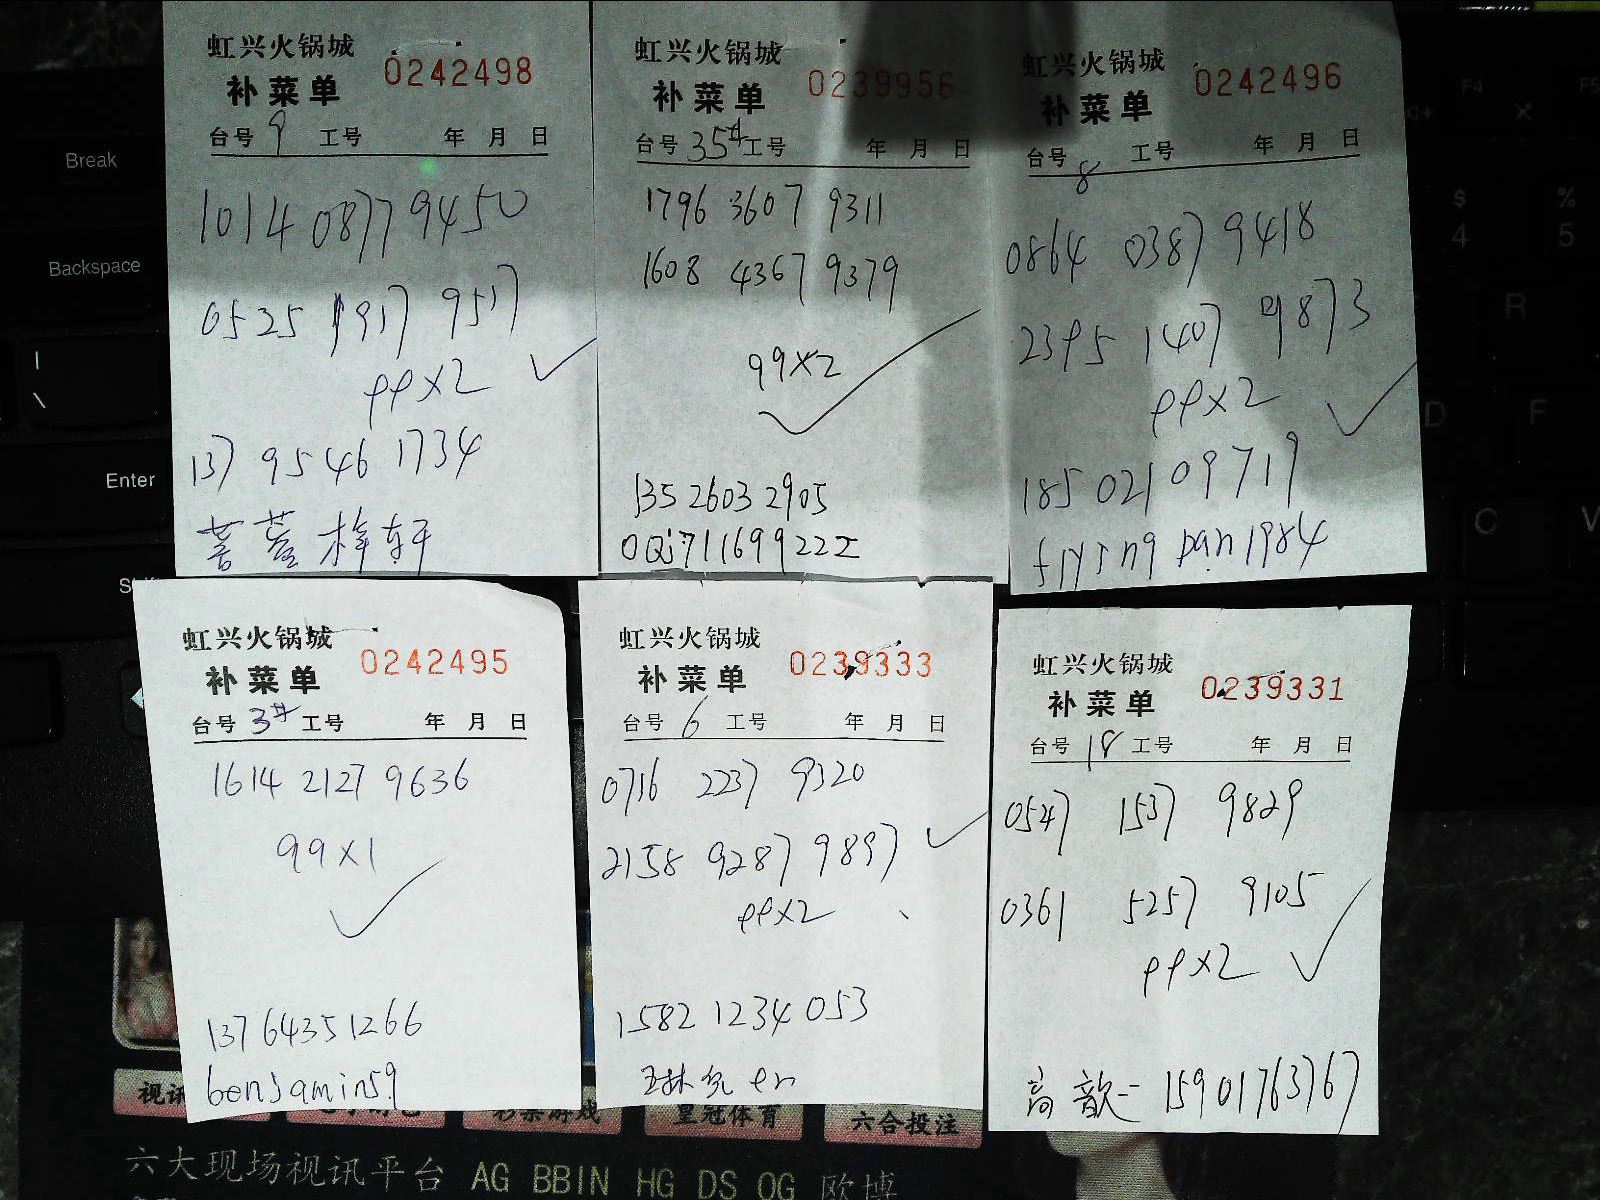 虹兴火锅城
补菜单 0242498
台号 9 工号 年 月 日
1014 0877 9450
0525 1917 9517
99x2
137 9546 1734
虹兴火锅城
补菜单 0239956
台号 35# 工号 年 月 日
1796 3607 9311
1608 4367 9379
99x2
13526032905
0Qi711699222
虹兴火锅城
补菜单 0242496
台号 8 工号 年 月 日
0864 0387 9418
2395 1407 9873
99x2
18502109719
flying pan1984
虹兴火锅城
补菜单 0242495
台号 3# 工号 年 月 日
1614 2127 9636
99x1
13764351266
benjamin59
虹兴火锅城
补菜单 0239333
台号 6 工号 年 月 日
0716 2237 9320
2158 9287 9897
99x2
15821234053
虹兴火锅城
补菜单 0239331
台号 18 工号 年 月 日
0547 1537 9829
0361 5257 9105
99x2
高歆二 15901763767
Break
Backspace
Enter
F4
F5
$
4
%
5
R
D
F
C
V
视讯 彩票游戏 皇冠体育 六合投注
六大现场视讯平台 AG BBIN HG DS OG 欧博